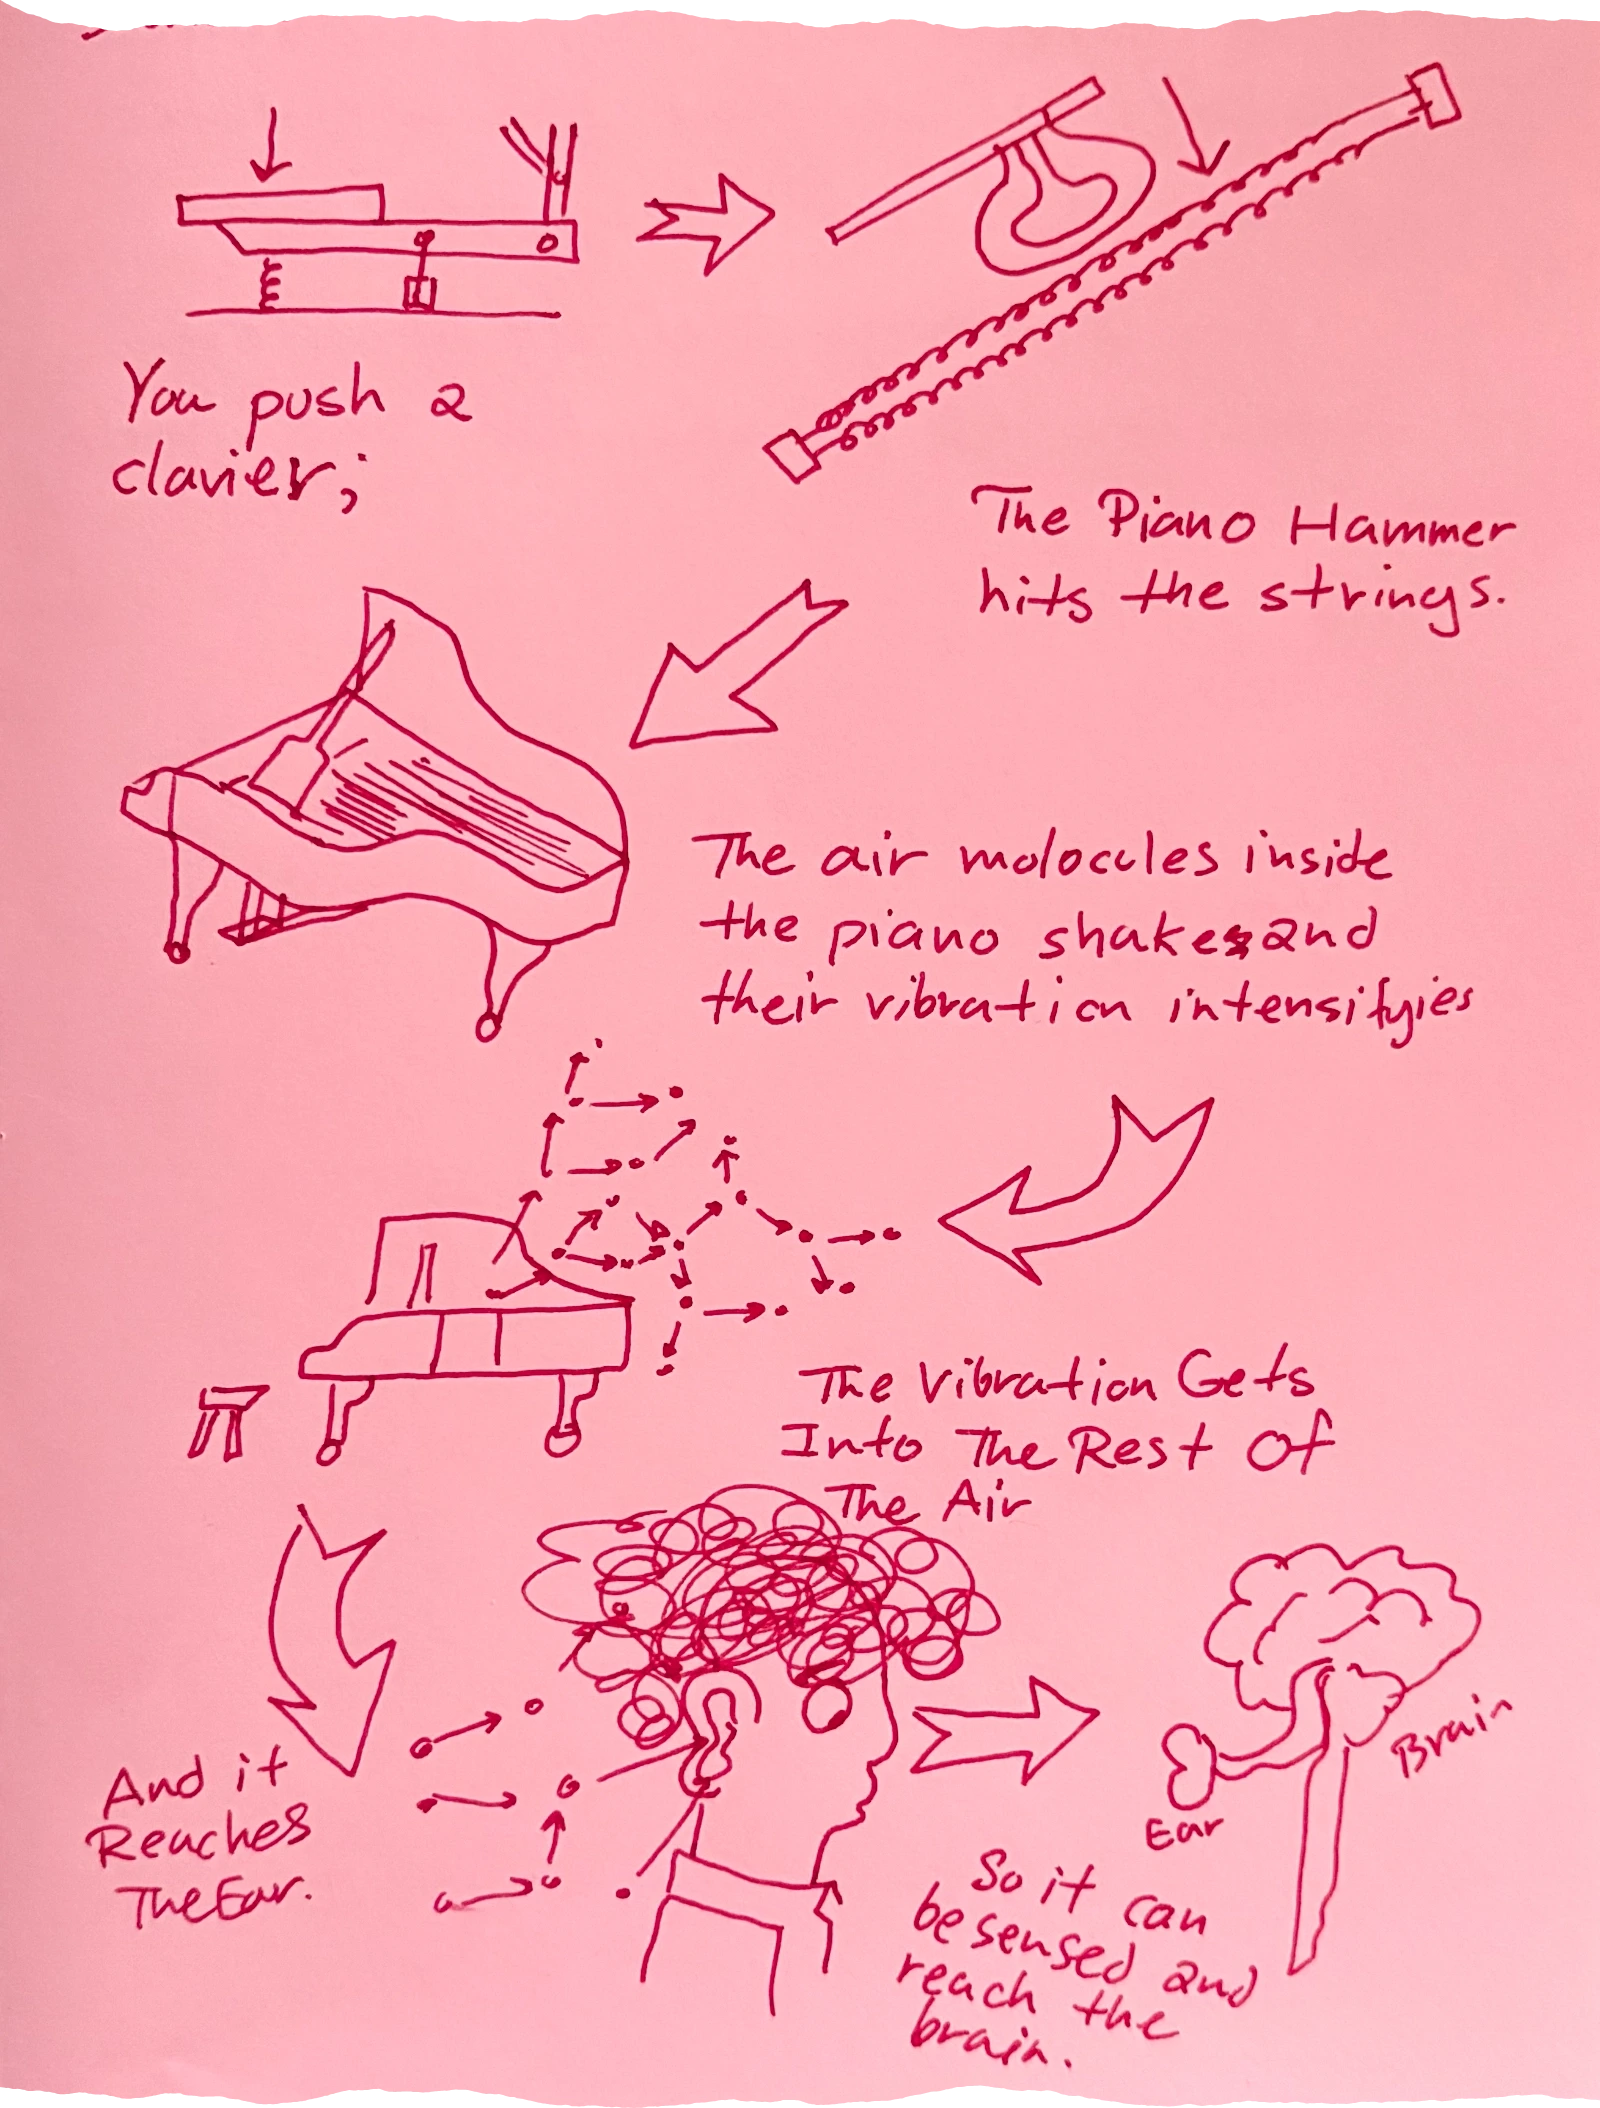 You push a
clavier;
The Piano Hammer
hits the strings.
The air molocules inside
the piano shakes and
their vibration intensifyies
The Vibration Gets
Into The Rest Of
The Air
And it
Reaches
The Ear.
Ear
Brain
So it can
be sensed and
reach the
brain.